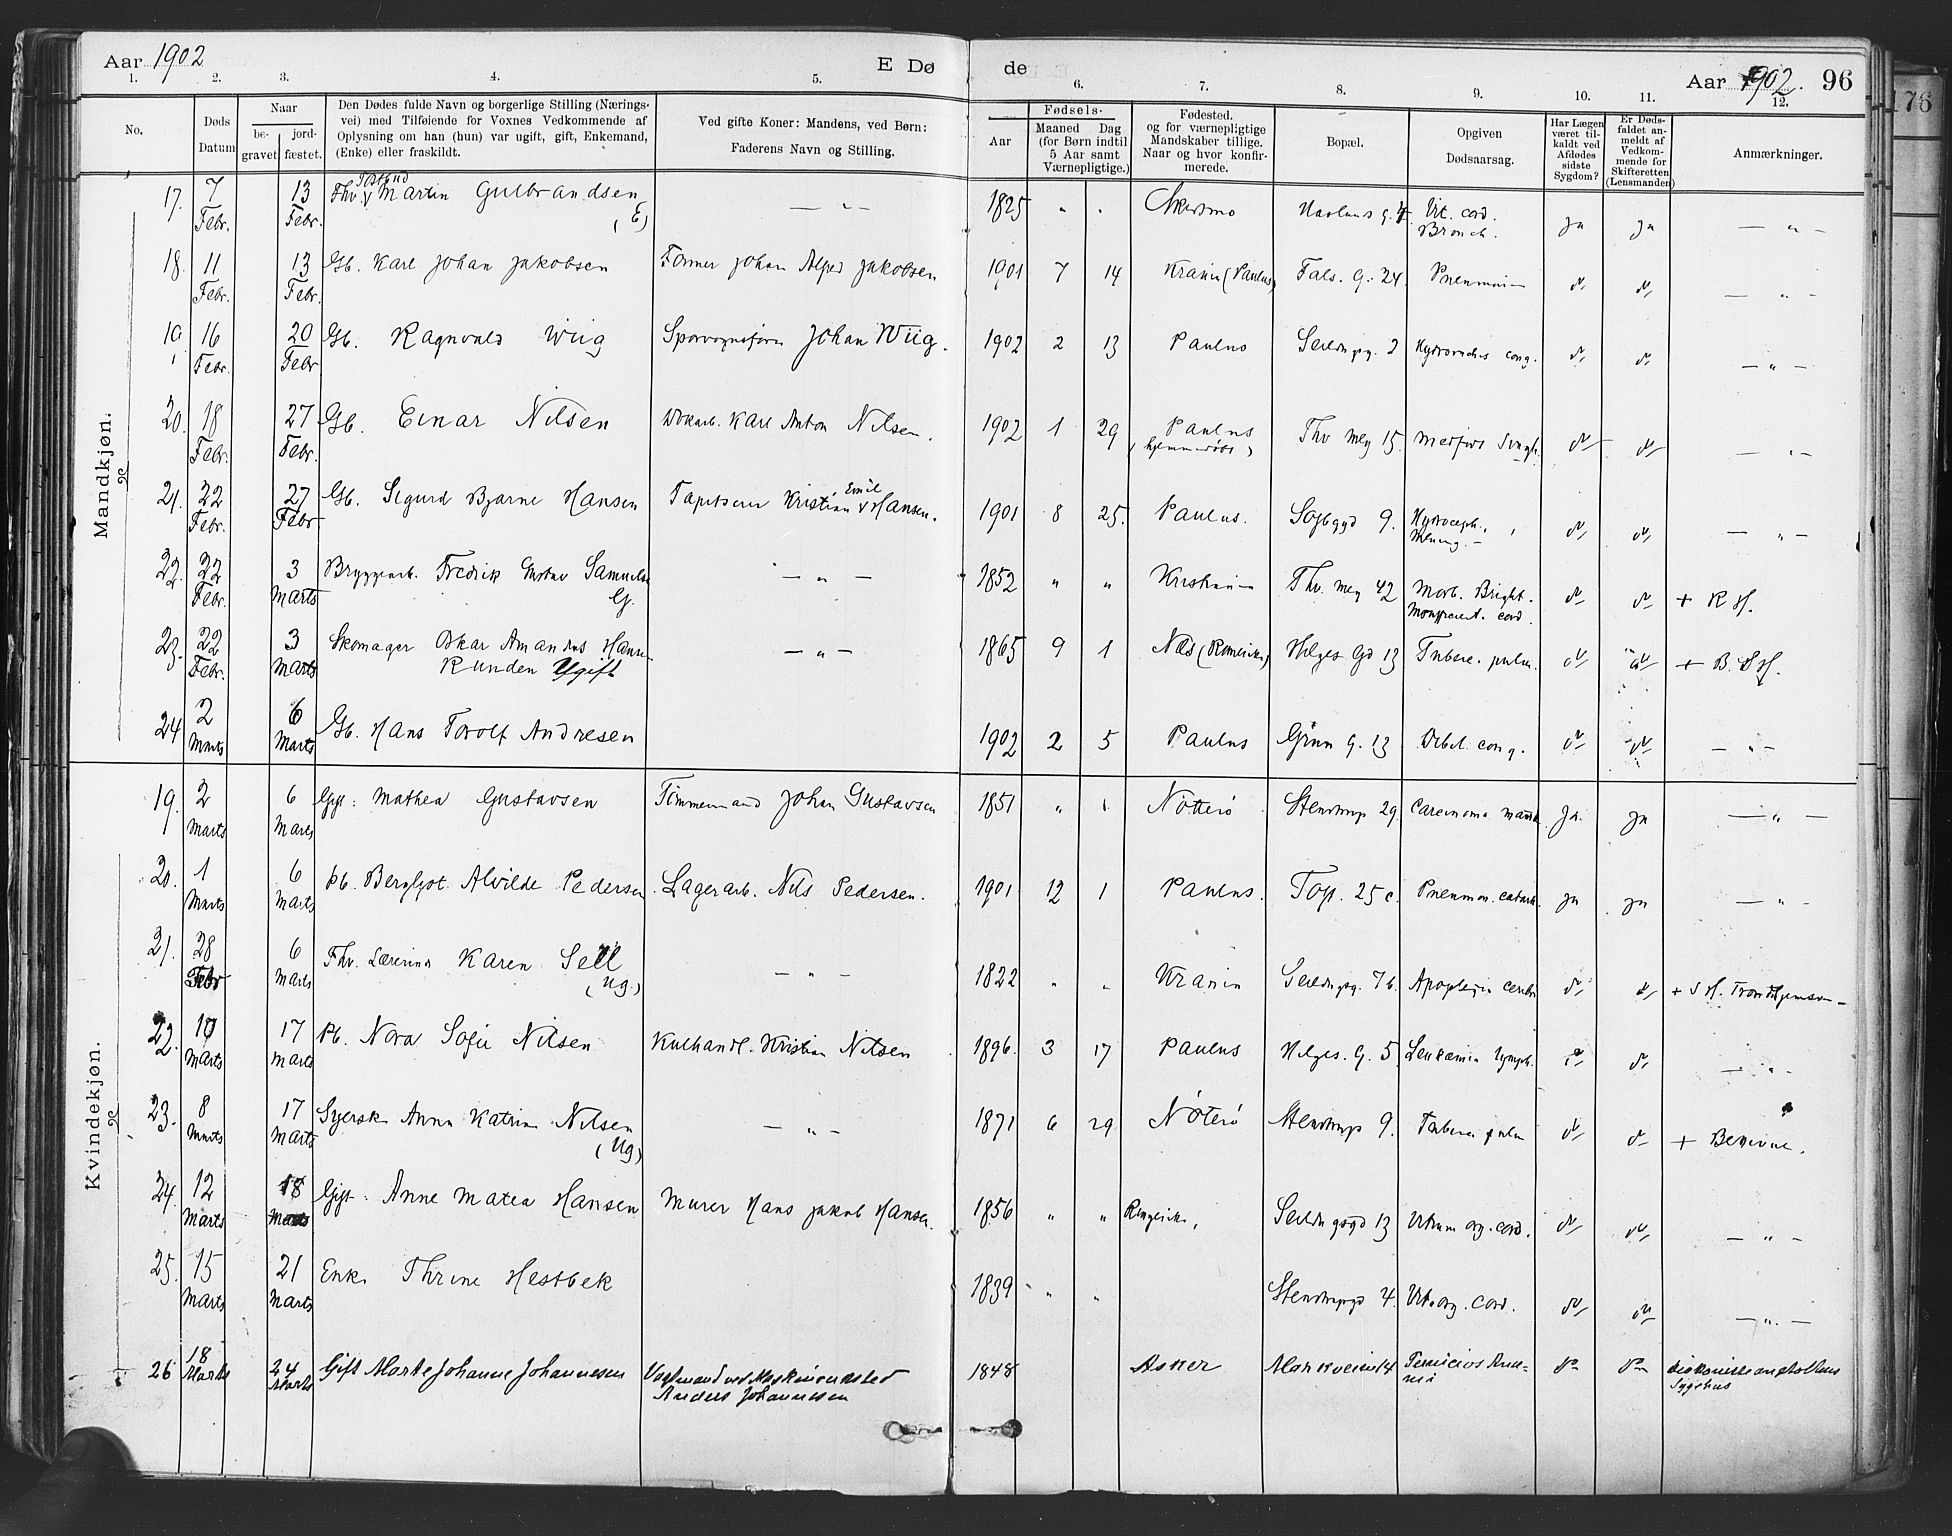 Aar 1902
E Dø
de
Aar 1902. 96
176
1. 2. 3. 4. 5. 6. 7. 8. 9. 10. 11. 12.
No.
Døds Datum
Naar
be- gravet
jord- fæstet.
Den Dødes fulde Navn og borgerlige Stilling (Nærings-
vei) med Tilføiende for Voxnes Vedkommende af
Oplysning om han (hun) var ugift, gift, Enkemand,
(Enke) eller fraskildt.
Ved gifte Koner: Mandens, ved Børn:
Faderens Navn og Stilling.
Fødsels-
Aar
Maaned Dag
(for Børn indtil
5 Aar samt
Værnepligtige.)
Fødested.
og for værnepligtige
Mandskaber tillige.
Naar og hvor konfir-
merede.
Bopæl.
Opgiven
Dødsaarsag.
Har Lægen
været til-
kaldt ved
Afdødes
sidste
Sygdom?
Er Døds-
faldet an-
meldt af
Vedkom-
mende for
Skifteretten
(Lensmanden)
Anmærkninger.
Mandkjøn.
17. 7 Febr. 13 Febr. Fhv. Postbud Martin Gulbrandsen (E) — " — 1825 " " Skedsmo Vit. cord. Bronch. Ja Ja — " —
18. 11 Febr. 13 Febr. Gb. Karl Johan Jakobsen Former Johan Alfred Jakobsen 1901 7 14 Krania (Paulus) Fals. G. 24 Pneumoni — " —
19. 16 Febr. 20 Febr. Gb. Ragnvald Wiig Sporvognsfører Johan Wiig. 1902 2 13 Paulus Seildugsg. cong. — " —
20. 18 Febr. 27 Febr. Gb. Einar Nilsen Karl Anton Nilsen. 1902 1 29 Paulus (hjemmedøbt) Thv Mey 15. — " —
21. 22 Febr. 27 Febr. Gb. Sigurd Bjarne Hansen Tapetserer Kristian Emil Hansen. 1901 8 25. Paulus. 9. Hydroceph. Mening. — " —
22. 22 Febr. 3 Marts Bryggearb. Fredrik Gustav Samuelsen G. — " — 1852 " " Kristiania Thv. Mey 42 Morb. Bright. cord. + R H.
23. 22 Febr. 3 Marts Skomager Oskar Amandus Hansen Runden Ugift — " — 1865 9 1 Næs (Romerike) Helges Gd 13 Tuberc. pulm.
24 2 Marts 6 Marts Gb. Hans Torolf Andresen 1902 2 5 Paulus Grün G. 13 Debil. cong. — " —
Kvindekjøn.
19. 2 Marts 6 Marts Gift: Mathea Gustavsen Tømmermand Johan Gustavsen 1851 " " Nøtterø Stenstrup 29. Carcinoma Ja. Ja — " —
20. 1 Marts 6 Marts Pb. Bergljot Alvilde Pedersen Lagerarb. Nils Pedersen. 1901 12 1 Paulus. Tof. 25 c. Pneumon. catarrh. Ja Ja — " —
21. 28 Febr 6 Marts Fhv. Lærerinde Karen Sell (Ug.) — " — 1822 " " Krania Seildugsg. 7 b. Apoplexia cerebri
22. 10 Marts 17 Marts Pb. Nora Sofie Nilsen Kulhandl. Kristian Nilsen 1896. 3 17 Paulus Helges. G. 5 Leukæmia lymph. — " —
23. 8 Marts 17 Marts Syersk Anna Katrine Nilsen (Ug) — " — 1871 6 29 Nøterø Stenstrup 9. Tuberc pulm
24. 12 Marts 18 Marts Gift: Anne Matea Hansen Murer Hans Jakob Hansen. 1856 " " Ringerike, Seildugsgd 13 Vitium org. cord. — " —
25. 15 Marts 21 Marts Enke Thrine Hestbek 1839 " " 4. Vit. org. cord. — " —
26 18 Marts 24 Marts Gift Marte Johanne Johannessen Anders Johannessen 1848 Asker Markveien 14 Diakonisseanstaltens Sygehus